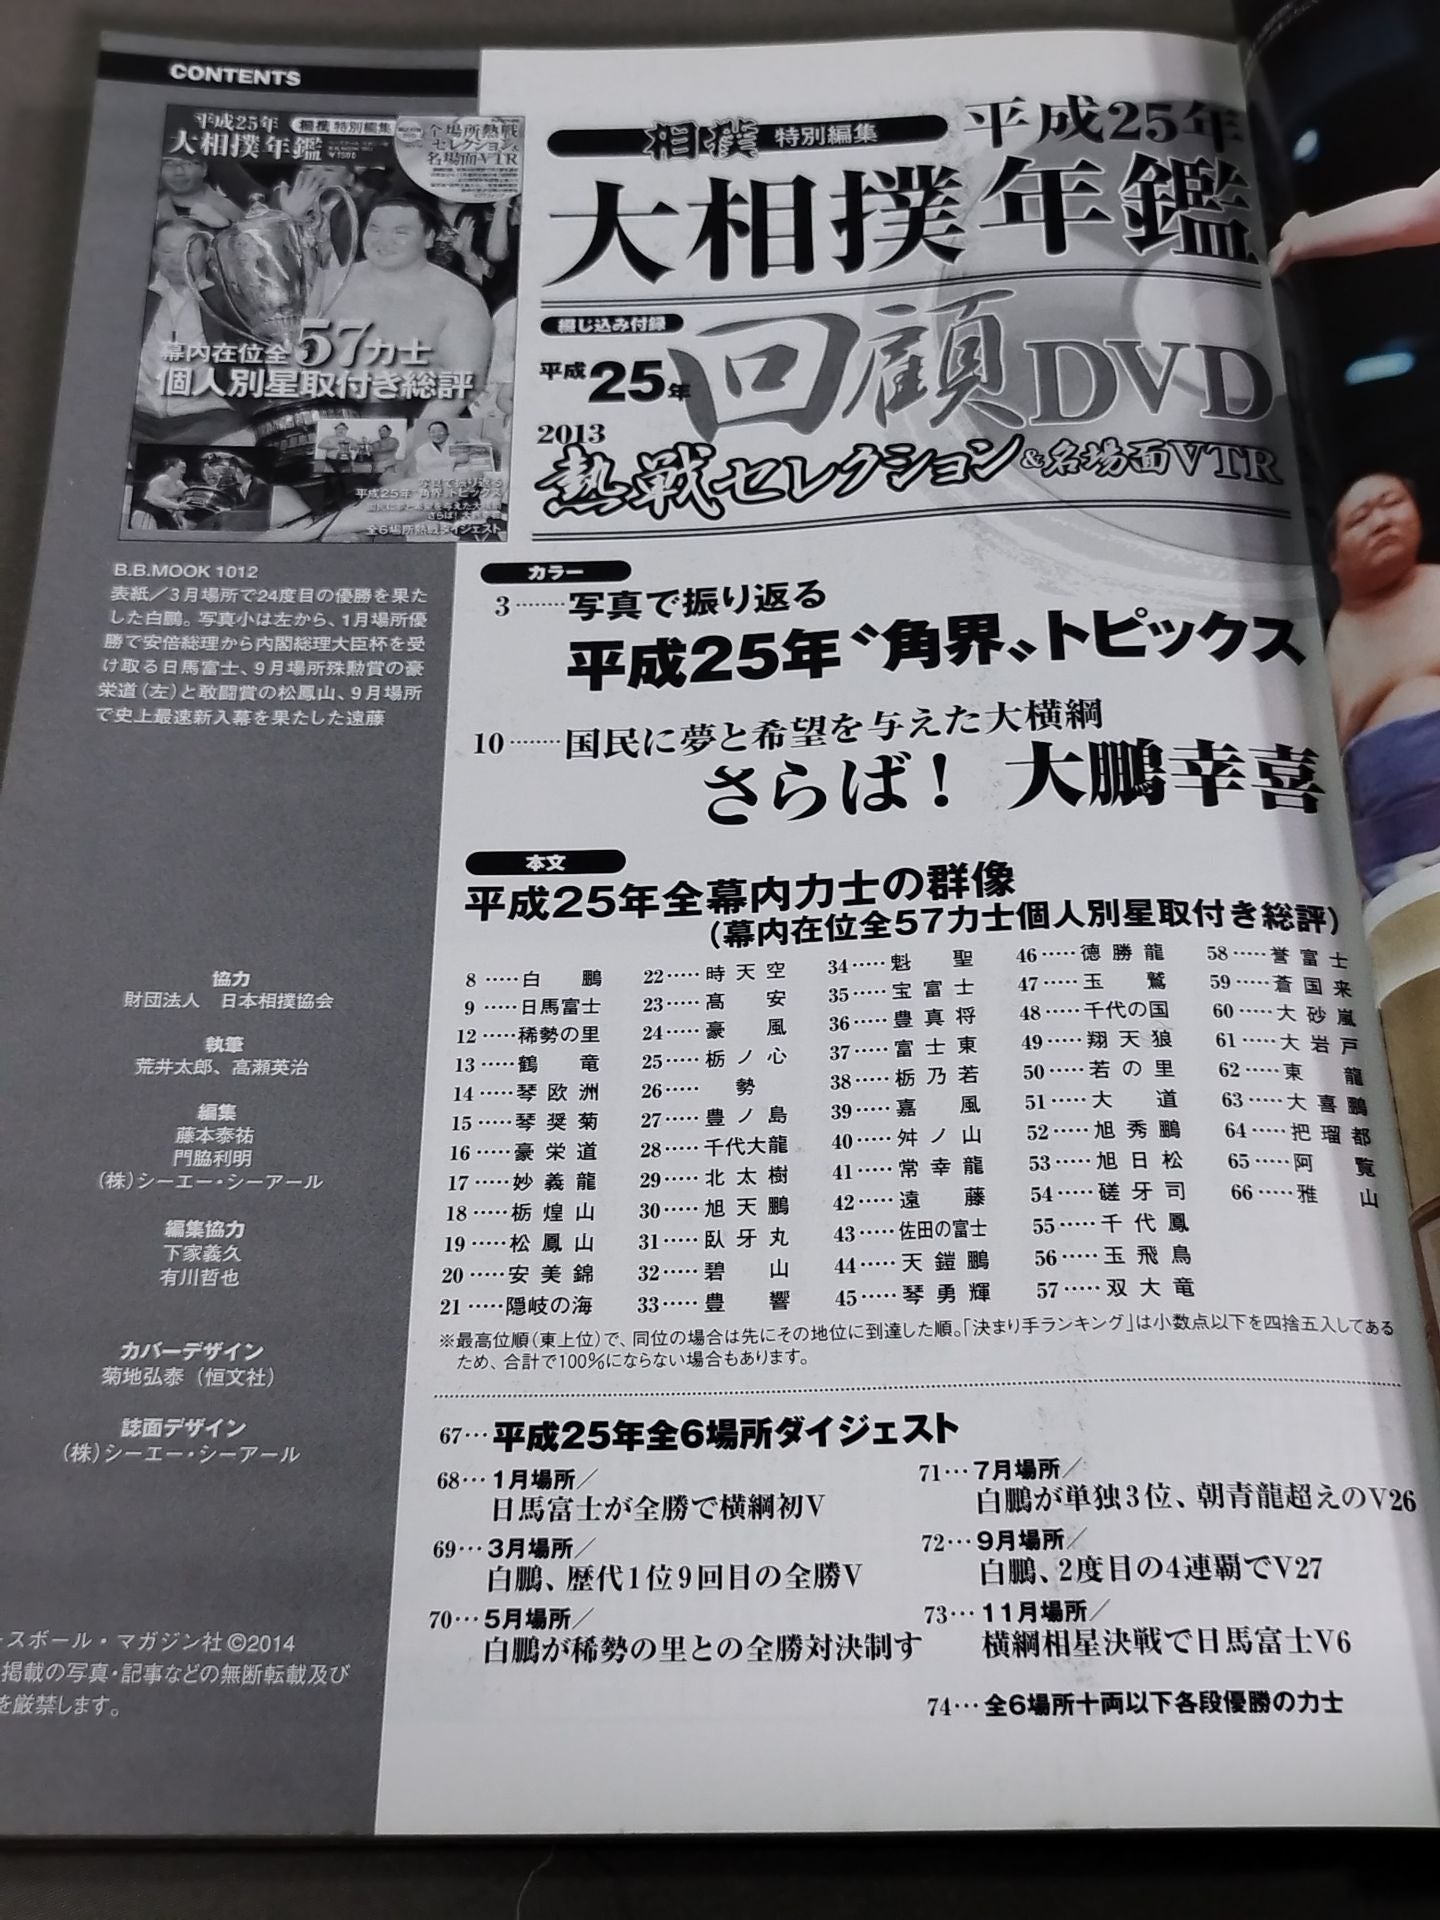 CONTENTS
平成25年
大相撲年鑑
相撲 特別編集
全場所熱戦
セレクション&
名場面VTR
幕内在位全57力士
個人別星取付き総評
写真で振り返る
平成25年“角界”トピックス
国民に夢と希望を与えた大横綱
さらば!大鵬幸喜
全6場所熱戦ダイジェスト
B.B.MOOK 1012
表紙/3月場所で24度目の優勝を果た
した白鵬。写真小は左から、1月場所優
勝で安倍総理から内閣総理大臣杯を受
け取る日馬富士、9月場所殊勲賞の豪
栄道(左)と敢闘賞の松鳳山、9月場所
で史上最速新入幕を果たした遠藤
協力
財団法人 日本相撲協会
執筆
荒井太郎、高瀬英治
編集
藤本泰祐
門脇利明
(株)シーエー・シーアール
編集協力
下家義久
有川哲也
カバーデザイン
菊地弘泰(恒文社)
誌面デザイン
(株)シーエー・シーアール
ースボール・マガジン社©2014
掲載の写真・記事などの無断転載及び
を厳禁します。
相撲 特別編集 平成25年
大相撲年鑑
綴じ込み付録
平成25年 回顧DVD
2013
熱戦セレクション&名場面VTR
カラー
3……写真で振り返る
平成25年“角界”トピックス
10……国民に夢と希望を与えた大横綱
さらば! 大鵬幸喜
本文
平成25年全幕内力士の群像
(幕内在位全57力士個人別星取付き総評)
8……白鵬
9……日馬富士
12……稀勢の里
13……鶴竜
14……琴欧洲
15……琴奨菊
16……豪栄道
17……妙義龍
18……栃煌山
19……松鳳山
20……安美錦
21……隠岐の海
22……時天空
23……高安
24……豪風
25……栃ノ心
26……勢
27……豊ノ島
28……千代大龍
29……北太樹
30……旭天鵬
31……臥牙丸
32……碧山
33……豊響
34……魁聖
35……宝富士
36……豊真将
37……富士東
38……栃乃若
39……嘉風
40……舛ノ山
41……常幸龍
42……遠藤
43……佐田の富士
44……天鎧鵬
45……琴勇輝
46……徳勝龍
47……玉鷲
48……千代の国
49……翔天狼
50……若の里
51……大道
52……旭秀鵬
53……旭日松
54……磋牙司
55……千代鳳
56……玉飛鳥
57……双大竜
58……誉富士
59……蒼国来
60……大砂嵐
61……大岩戸
62……東龍
63……大喜鵬
64……把瑠都
65……阿覧
66……雅山
※最高位順(東上位)で、同位の場合は先にその地位に到達した順。「決まり手ランキング」は小数点以下を四捨五入してある
ため、合計で100%にならない場合もあります。
67…平成25年全6場所ダイジェスト
68…1月場所/
日馬富士が全勝で横綱初V
69…3月場所/
白鵬、歴代1位9回目の全勝V
70…5月場所/
白鵬が稀勢の里との全勝対決制す
71…7月場所/
白鵬が単独3位、朝青龍超えのV26
72…9月場所/
白鵬、2度目の4連覇でV27
73…11月場所/
横綱相星決戦で日馬富士V6
74…全6場所十両以下各段優勝の力士